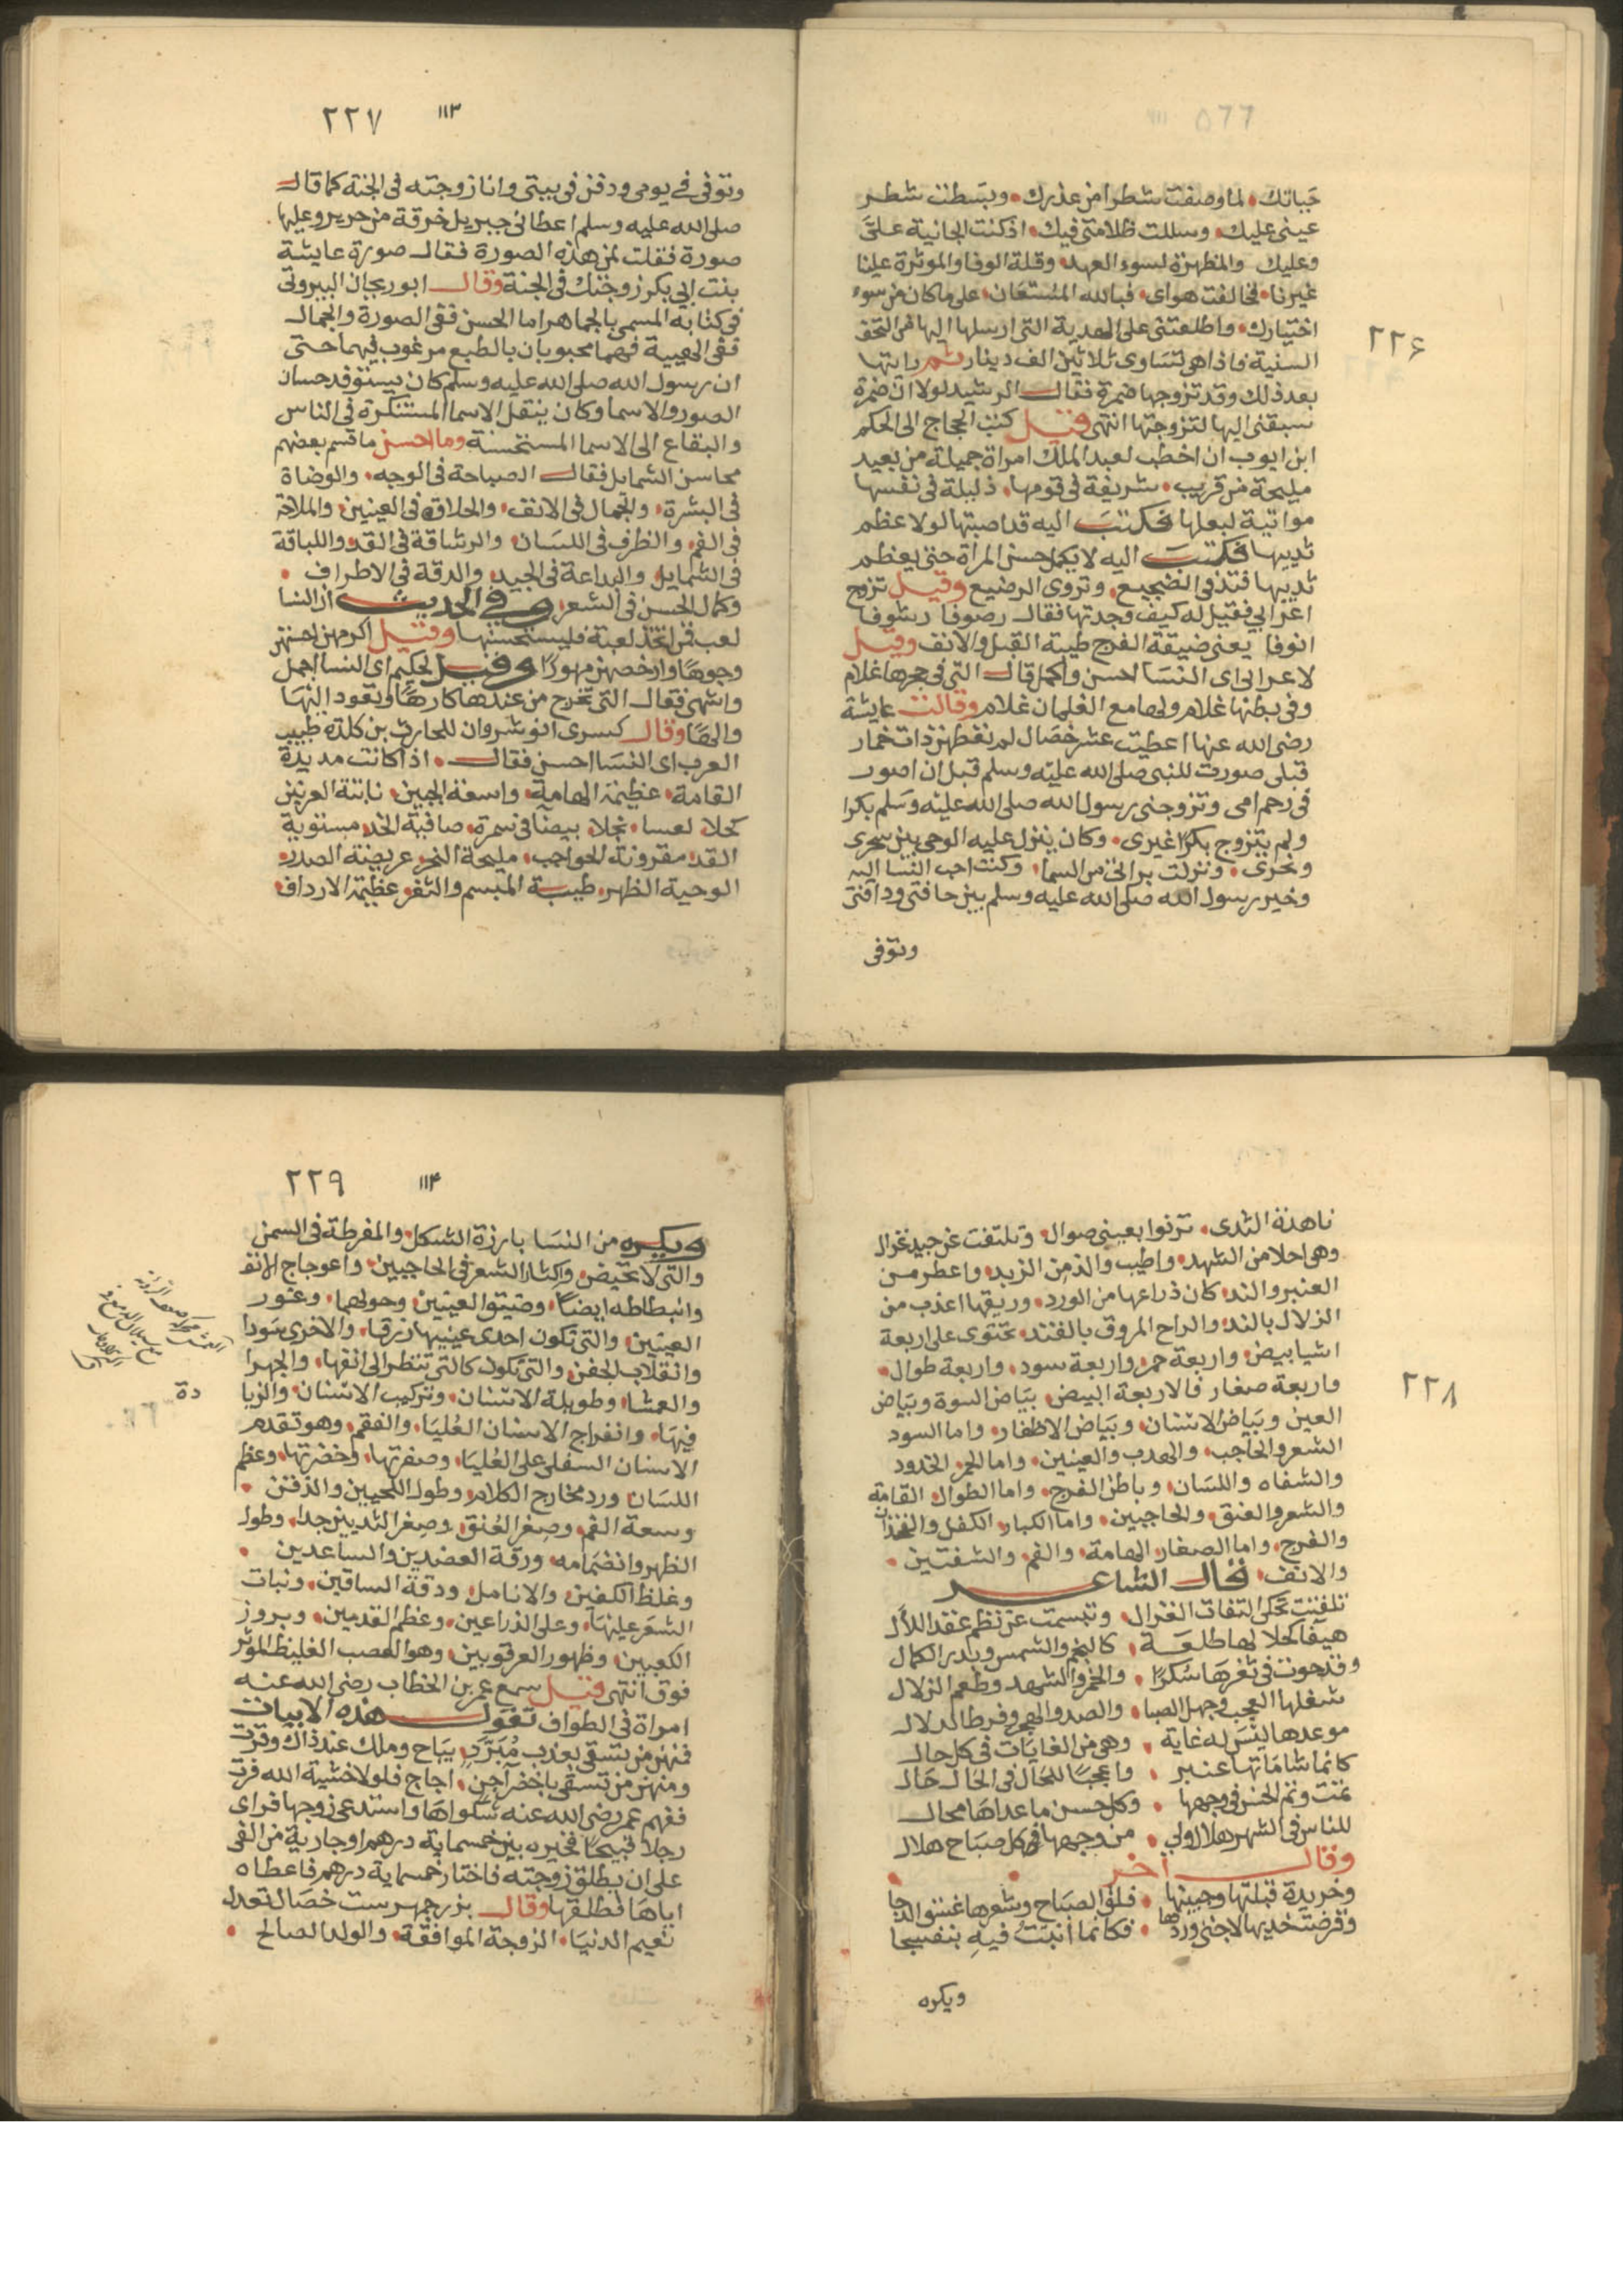 ٢٢٦
حبايك، لما وصفت شطرا من عذرك، وبسطت شطر
عيني عليك، وسللت ظلامتي فيك، اذ كنت الجانية على
وعليك والمظهرة لسوء العهد، وقلة الوفا والموثرة علينا
غيرنا، فخالفت هواى، فبالله المستعان، على ما كان من سوء
اختيارك، واطلعتنى على الهدية التى ارسلها اليها من التحف
السنية فاذا هى تساوى ثلاثين الف دينار ثم رايتها
بعد ذلك وقد تزوجها ضمرة فقال الرشيد لولا ان ضمرة
سبقنى اليها لتزوجتها انتهى وقيل كتب الحجاج الى الحكم
ابن ايوب ان اخطب لعبد الملك امراة جميلة من بعيد
مليحة من قريب، شريفة فى قومها، ذليلة فى نفسها
مواتية لبعلها فكتب اليه قد اصبتها لولا عظم
ثدييها فكتب اليه لا يكمل حسن المراة حتى يعظم
ثدييها فتدفى الضجيع، وتروى الرضيع وقيل تزوج
اعرابى فقيل له كيف وجدتها فقال رصوفا رشوفا
انوفا يعنى ضيقة الفرج طيبة القبل والانف وقيل
لاعرابى اى النسا احسن واكمل قال التى فى حجرها غلام
وفى بطنها غلام ولها مع الغلمان غلام وقالت عايشة
رضى الله عنها اعطيت عشر خصال لم تعطهن ذات خمار
قبلى صورت للنبى صلى الله عليه وسلم قبل ان اصور
فى رحم امى وتزوجنى رسول الله صلى الله عليه وسلم بكرا
ولم يتزوج بكرا غيرى، وكان ينزل عليه الوحى بين سحرى
ونحرى، ونزلت براتى من السما، وكنت احب النسا اليه
وخير رسول الله صلى الله عليه وسلم بين حاقنتى وذاقنتى
وتوفى
٢٢٧ ١١٣
وتوفى فى يومى ودفن فى بيتى وانا زوجته فى الجنة كما قال
صلى الله عليه وسلم اعطانى جبريل خرقة من حرير وعليها
صورة فقلت لمن هذه الصورة فقال صورة عايشة
بنت ابى بكر زوجتك فى الجنة وقال ابو ريحان البيرونى
فى كتابه المسمى بالجماهر اما الحسن ففى الصورة والجمال
ففى الهيبة فهما محبوبان بالطبع مرغوب فيهما حتى
ان رسول الله صلى الله عليه وسلم كان يستوفد حسان
الصور والاسما وكان ينقل الاسما المستنكرة فى الناس
والبقاع الى الاسما المستحسنة وما احسن ما قسم بعضهم
محاسن الشمايل فقال الصباحة فى الوجه، والوضاة
فى البشرة، والجمال فى الانف، والحلاوة فى العينين، والملاحة
فى الفم، والظرف فى اللسان، والرشاقة فى القد، واللباقة
فى الشمايل، والبداعة فى الجيد، والدقة فى الاطراف،
وكمال الحسن فى الشعر وفى الحديث ان النسا
لعب فمن اتخذ لعبة فليستحسنها وقيل اكرمهن احسنهن
وجوها وارخصهن مهورا وقيل لحكيم اى النسا اجمل
واشهى فقال التى تخرج من عندها كارها وتعود اليها
والها وقال كسرى انوشروان للحارث بن كلدة طبيب
العرب اى النسا احسن فقال، اذا كانت مديدة
القامة، عظيمة الهامة، واسعة الجبين، ناتئة العرنين
كحلا لعسا، نجلا، بيضا فى سمرة، صافية الخد، مستوية
القد، مقرونة الحواجب، مليحة النحر عريضة الصدر،
الوحية الظهر، طيبة المبسم والثغر، عظيمة الارداف،
٢٢٨
ناهدة الثدى، ترنوا بعينى صوال، وتلتفت عن جيد غزال
وهى احلا من الشهد، واطيب والذ من الزبد، واعطر من
العنبر والند، كان ذراعها من الورد، وريقها اعذب من
الزلال بالند، والراح المروق بالفند، تحتوى على اربعة
اشيا بيض، واربعة حمر، واربعة سود، واربعة طوال،
واربعة صغار فالاربعة البيض، بياض السوة وبياض
العين وبياض الاسنان، وبياض الاظفار، واما السود
الشعر والحاجب، والهدب والعينين، واما الحمر، الخدود
والشفاه واللسان، وباطن الفرج، واما الطوال، القامة
والشعر والعنق، والحاجبين، واما الكبار، الكفل والفخذان
والفرج، واما الصغار، الهامة، والفم، والشفتين،
والانف، قال الشاعر
تلفتت تحكى التفات الغزال، وتبسمت عن نظم عقد اللال
هيفا كحلا لها طلعة، كالنجم والشمس وبدر الكمال
وقد حوت فى ثغرها سكرا، والخمر والشهد وطعم الزلال
شغلها العجب وجهل الصبا، والصد والهجر وفرط الدلال
موعدها ليس له غاية، وهى من الغايات فى كل حال
كانما شاماتها عنبر، واعجبا للخال فى الخال خال
تمت وتم الحسن فى وجهها، وكل حسن ما عداها محال
للناس فى الشهر هلال ولى، من وجهها فى كل صباح هلال
وقال اخر
وخريدة قبلتها وجبينها، فلق الصباح وشعرها غسق الدجا
وقرضت خديها لاجنى وردها، فكانما انبت فيه بنفسجا
ويكره
٢٢٩ ١١٤
ويكره من النسا بارزة الشكل، والمفرطة فى السمن
والتى لا تحيض، واكثار الشعر فى الحاجبين، واعوجاج الانف
وانبطاطه ايضا، وضيق العينين، وحولهما، وغور
العينين، والتى تكون احدى عينيها زرقا، والاخرى سودا
وانقلاب الجفن، والتى تكون كالتى تنظر الى انفها، والجهرا
والعمشا، وطويلة الاسنان، وتركيب الاسنان، والزيا
دة
فيها، وانفراج الاسنان العليا، والفقم، وهو تقدم
الاسنان السفلى على العليا، وصفرتها، وخضرتها، وعظم
اللسان، ورد مخارج الكلام، وطول اللحيين والذقن،
وسعة الفم، وصغر العنق، وصغر الثديين جدا، وطول
الظهر وانضمامه، ورقة العضدين والساعدين،
وغلظ الكفين، والانامل، ودقة الساقين، ونبات
الشعر عليها، وعلى الذراعين، وعظم القدمين، وبروز
الكعبين، وظهور العرقوبين، وهو العصب الغليظ الموثر
فوق انتهى قيل سمع عمر بن الخطاب رضى الله عنه
امراة فى الطواف تقول هذه الابيات
فمنهن من تسقى بعذب مبرد، يباح وملك عند ذاك وقرت
ومنهن من تسقى باخضر آجن، اجاج فلولا خشية الله فرت
ففهم عمر رضى الله عنه شكواها واستدعى زوجها فراى
رجلا قبيحا فخيره بين خمسماية درهم او جارية من الفى
على ان يطلق زوجته فاختار خمسماية درهم فاعطاه
اياها فطلقها وقال بزرجمهر ست خصال تعدل
نعيم الدنيا، الزوجة الموافقة، والولد الصالح،